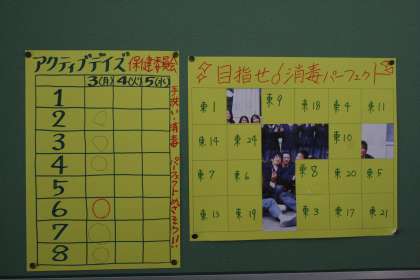 アクティブデイズ 保健委員会
3(月) 4(火) 5(水)
1
2
3
4
5
6
7
8
手洗い・消毒 パーフェクトめざそう!!
目指せ!消毒パーフェクト
東1 東9 東18 東4 東11
東14 東24 東10
東7 東6 東8 東20 東5
東13 東19 東3 東17 東21